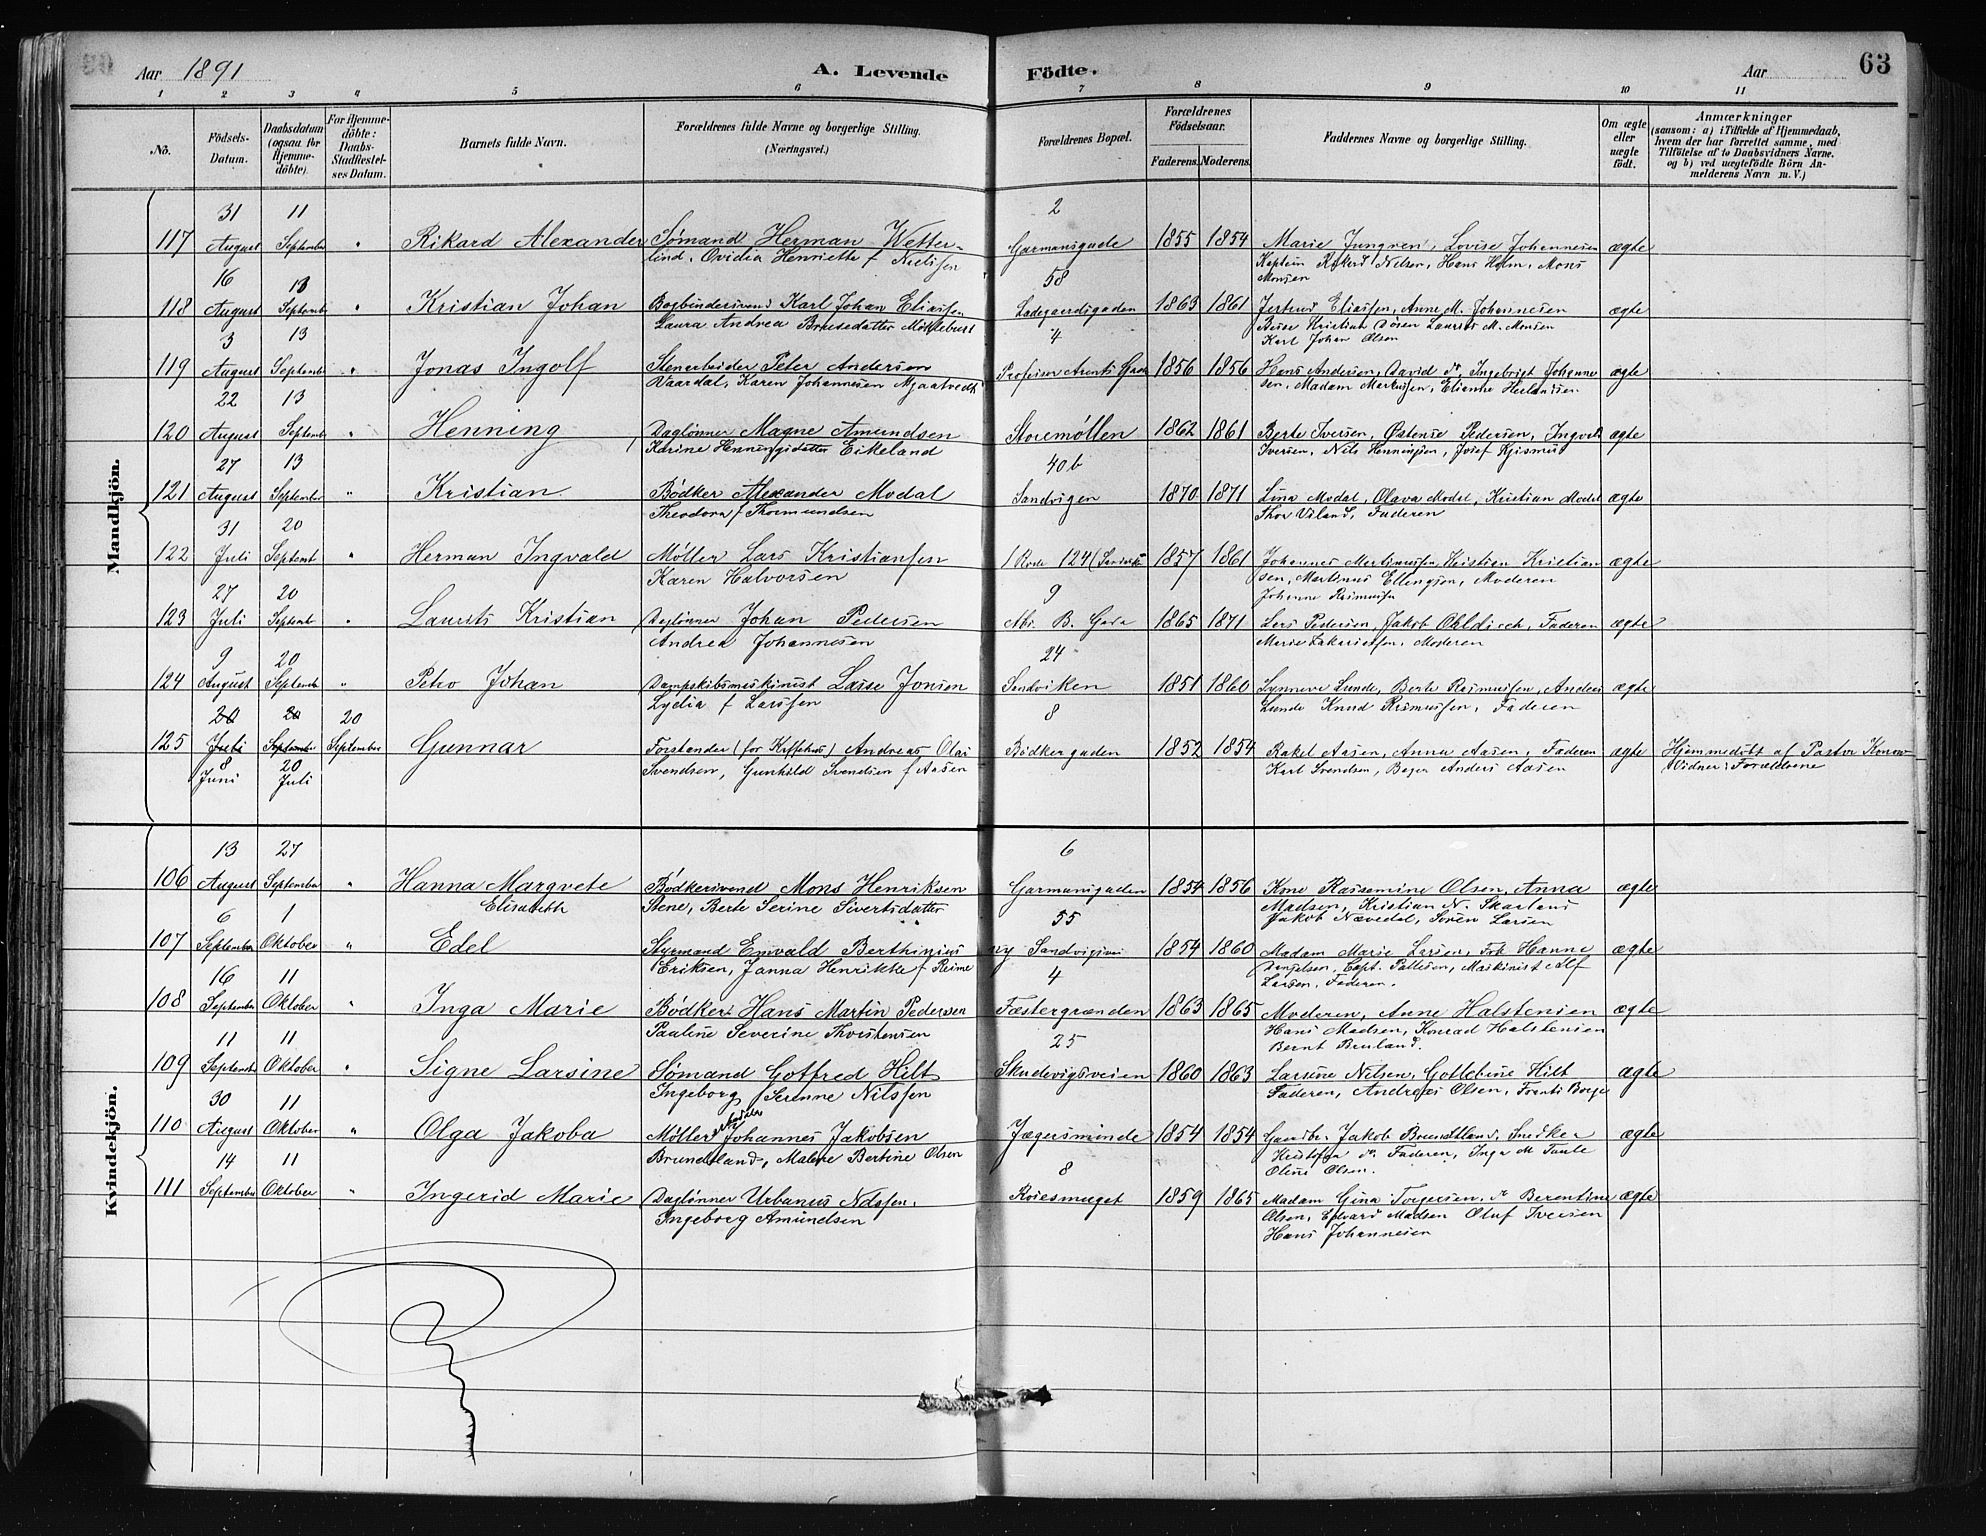 Aar 1891
A. Levende Födte.
Aar
63
1 2 3 4 5 6 7 8 9 10 11
No.
Födsels-Datum.
Daabsdatum (ogsaa for Hjemmedöbte).
For Hjemmedöbte: Daabs-Stadfæstelses Datum.
Barnets fulde Navn.
Forældrenes fulde Navne og borgerlige Stilling. (Næringsvei.)
Forældrenes Bopæl.
Forældrenes Födselsaar.
Faderens. Moderens.
Faddernes Navne og borgerlige Stilling.
Om ægte eller uægte födt.
Anmærkninger
(saasom: a) i Tilfælde af Hjemmedaab, hvem der har forrettet samme, med Tilföielse af to Daabsvidners Navne. og b) ved uægtefödte Börn Anmelderens Navn m. V.)
Mandkjön.
31 11 2
117 August September " Rikard Alexander Sømand Herman Wetter- Garmansgade 1855 1854 Marie Jungren, Lovise Johannesen ægte
lind. Ovidia Henriette f Nielsen Kaptein Rikard Nilsen, Hans Holm, Mons
16 13 58 Monsen
118 August September " Kristian Johan Bogbindersvend Karl Johan Eliassen Ladegaardsgaden 1863 1861 Jertrud Eliassen, Anne M. Johannesen ægte
Laura Andrea Kristian Laurits M. Monsen
3 13 4 Karl Johan Olsen
119 August September " Jonas Ingolf Stenarbeider Peter Andersen 1856 1856 Hans Andersen, David do, Ingebrigt Johanne ægte
Karen Johannesen sen, Madam Markussen,
22 13
120 August September " Henning Daglønner Magne Amundsen Storemøllen 1862 1861 Berte Iversen, Østense Pedersen, Ingvald ægte
Karine Henningsdatter Eikeland Iversen, Nils Henningsen, Josef
27 13 40b
121 August September " Kristian Bødker Alexander Modal Sandvigen 1870 1871 Lina Modal, Olava Modal, Kristian Modal ægte
Theodora f Thormundsen Thor Viland, Faderen
31 20
122 Juli Septemb " Herman Ingvald Møller Lars Kristiansen 1 Rode 124 1857 1861 Johannes Martinussen, Kristian Kristian ægte
Karen Halvorsen sen, Martinus Ellingsen, Moderen
27 20 9 Johanne Rasmussen
123 Juli Septemb " Laurits Kristian Daglønner Johan Pedersen 1865 1871 Lars Pedersen, Jakob Faderen ægte
Andrea Johannesen Marie Sakariassen, Moderen
9 20 24
124 August September " Petro Johan Dampskibsmaskinist Lasse Jonsen Sandviken 1851 1860 Synneve Lunde, Berte Rasmussen, Anders ægte
Lydia f Larssen Lunde Knud Rasmussen, Faderen
20 20 20 8
125 Juli September September Gunnar Forstander Andreas Olai Bødkergaden 1852 1854 Rakel Aasen, Anna Aasen, Faderen ægte Hjemmedøbt af Pastor Konow
8 20 Svendsen, Gunhild Svendsen f Aasen Karl Svendsen, Anders Aasen Vidner: Forældrene
Juni Juli
Kvindekjön.
13 27 6
106 August September " Hanna Margrete Bødkersvend Mons Henriksen Garmansgaden 1854 1856 Kone Rassemine Olsen, Anna ægte
Elisabeth Stene, Berte Serine Sivertsdatter Madsen, Kristian N. Skarland
6 1 55 Jakob Nævedal, Søren Larsen
107 September Oktober " Edel Styrmand Enwald Berthinius ny Sandvigvei 1854 1860 Madam Marie Larsen, Frk Hanne ægte
Eriksen, Janna Henrikke f Reime Danielsen, Capt. Pallesen, Maskinist Alf
16 11 4 Larsen, Faderen.
108 September Oktober " Inga Marie Bødker Hans Martin Pedersen Fæstergrænden 1863 1865 Moderen, Anne Halstensen ægte
Pauline Severine Thorstensen Hans Madsen, Konrad Halstensen
11 11 25 Bernt Bruland.
109 September Oktober " Signe Larsine Sømand Gotfred Hilt Skudevigsveien 1860 1863 Larsine Nilsen, Gottebine Hilt ægte
Ingeborg Serenne Nilssen Faderen, Andreas Olsen, Frants Borge
30 11
110 August Oktober " Olga Jakoba Møllerarbeider Johannes Jakobsen Jægersminde 1854 1854 Gaardbr. Jakob Brundtland, Snedker ægte
Brundtland, Malene Bertine Olsen Kristofer do. Faderen, Inga M
14 11 8 Oline Olsen.
111 September Oktober " Ingerid Marie Daglønner Urbanus Nilssen, Rosesmuget 1859 1865 Madam Gina Torgersen, do Berentine ægte
Ingeborg Amundsen Olsen, Edvard Madsen Oluf Iversen
Hans Johannesen